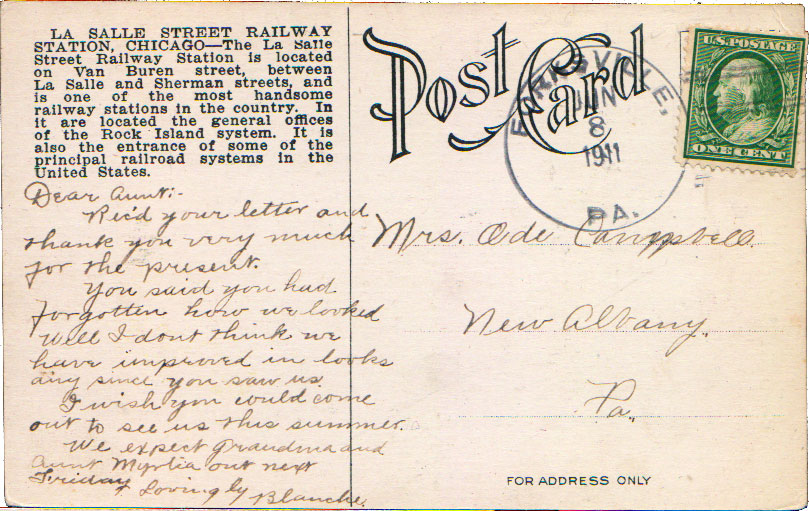 LA SALLE STREET RAILWAY
STATION, CHICAGO—The La Salle
Street Railway Station is located
on Van Buren street, between
La Salle and Sherman streets, and
is one of the most handsome
railway stations in the country. In
it are located the general offices
of the Rock Island system. It is
also the entrance of some of the
principal railroad systems in the
United States.
Dear Aunt:-
Rec'd your letter and
thank you very much
for the present.
You said you had
forgotten how we looked
Well I dont think we
have improved in looks
any since you saw us.
I wish you could come
out to see us this summer.
We expect Grandma and
Aunt Myrtia out next
Friday
Lovingly Blanche.
Post Card
FORKSVILLE,
JUN
8
1911
PA.
U.S. POSTAGE
ONE CENT
Mrs. Ode Campbell
New Albany,
Pa.
FOR ADDRESS ONLY